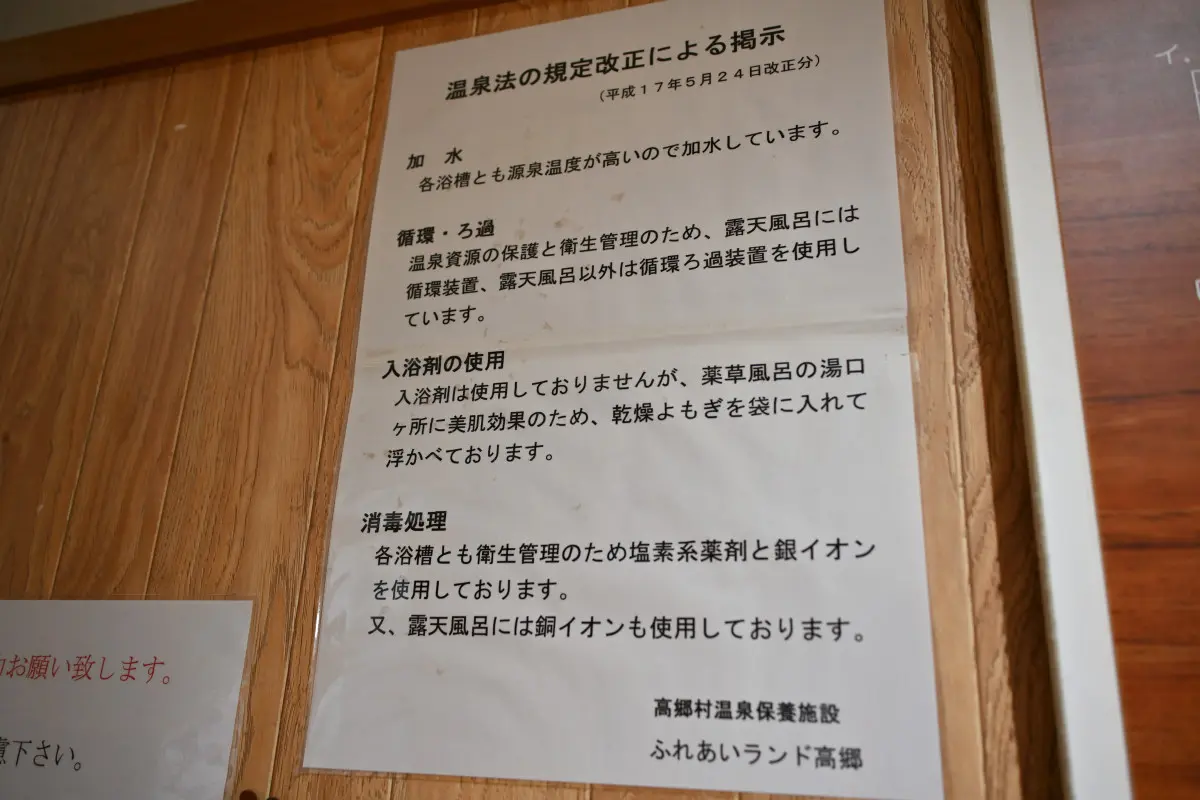 温泉法の規定改正による掲示
（平成１７年５月２４日改正分）
加　水
各浴槽とも源泉温度が高いので加水しています。
循環・ろ過
温泉資源の保護と衛生管理のため、露天風呂には
循環装置、露天風呂以外は循環ろ過装置を使用し
ています。
入浴剤の使用
入浴剤は使用しておりませんが、薬草風呂の湯口
ヶ所に美肌効果のため、乾燥よもぎを袋に入れて
浮かべております。
消毒処理
各浴槽とも衛生管理のため塩素系薬剤と銀イオン
を使用しております。
又、露天風呂には銅イオンも使用しております。
高郷村温泉保養施設
ふれあいランド高郷
お願い致します。
下さい。
イ.